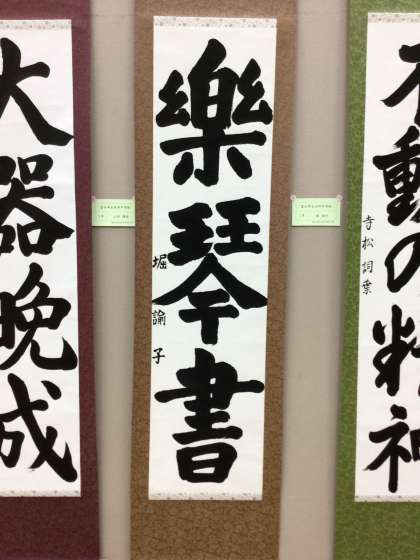 不動の精神
寺松詞葉
樂琴書
堀諭子
大器晩成